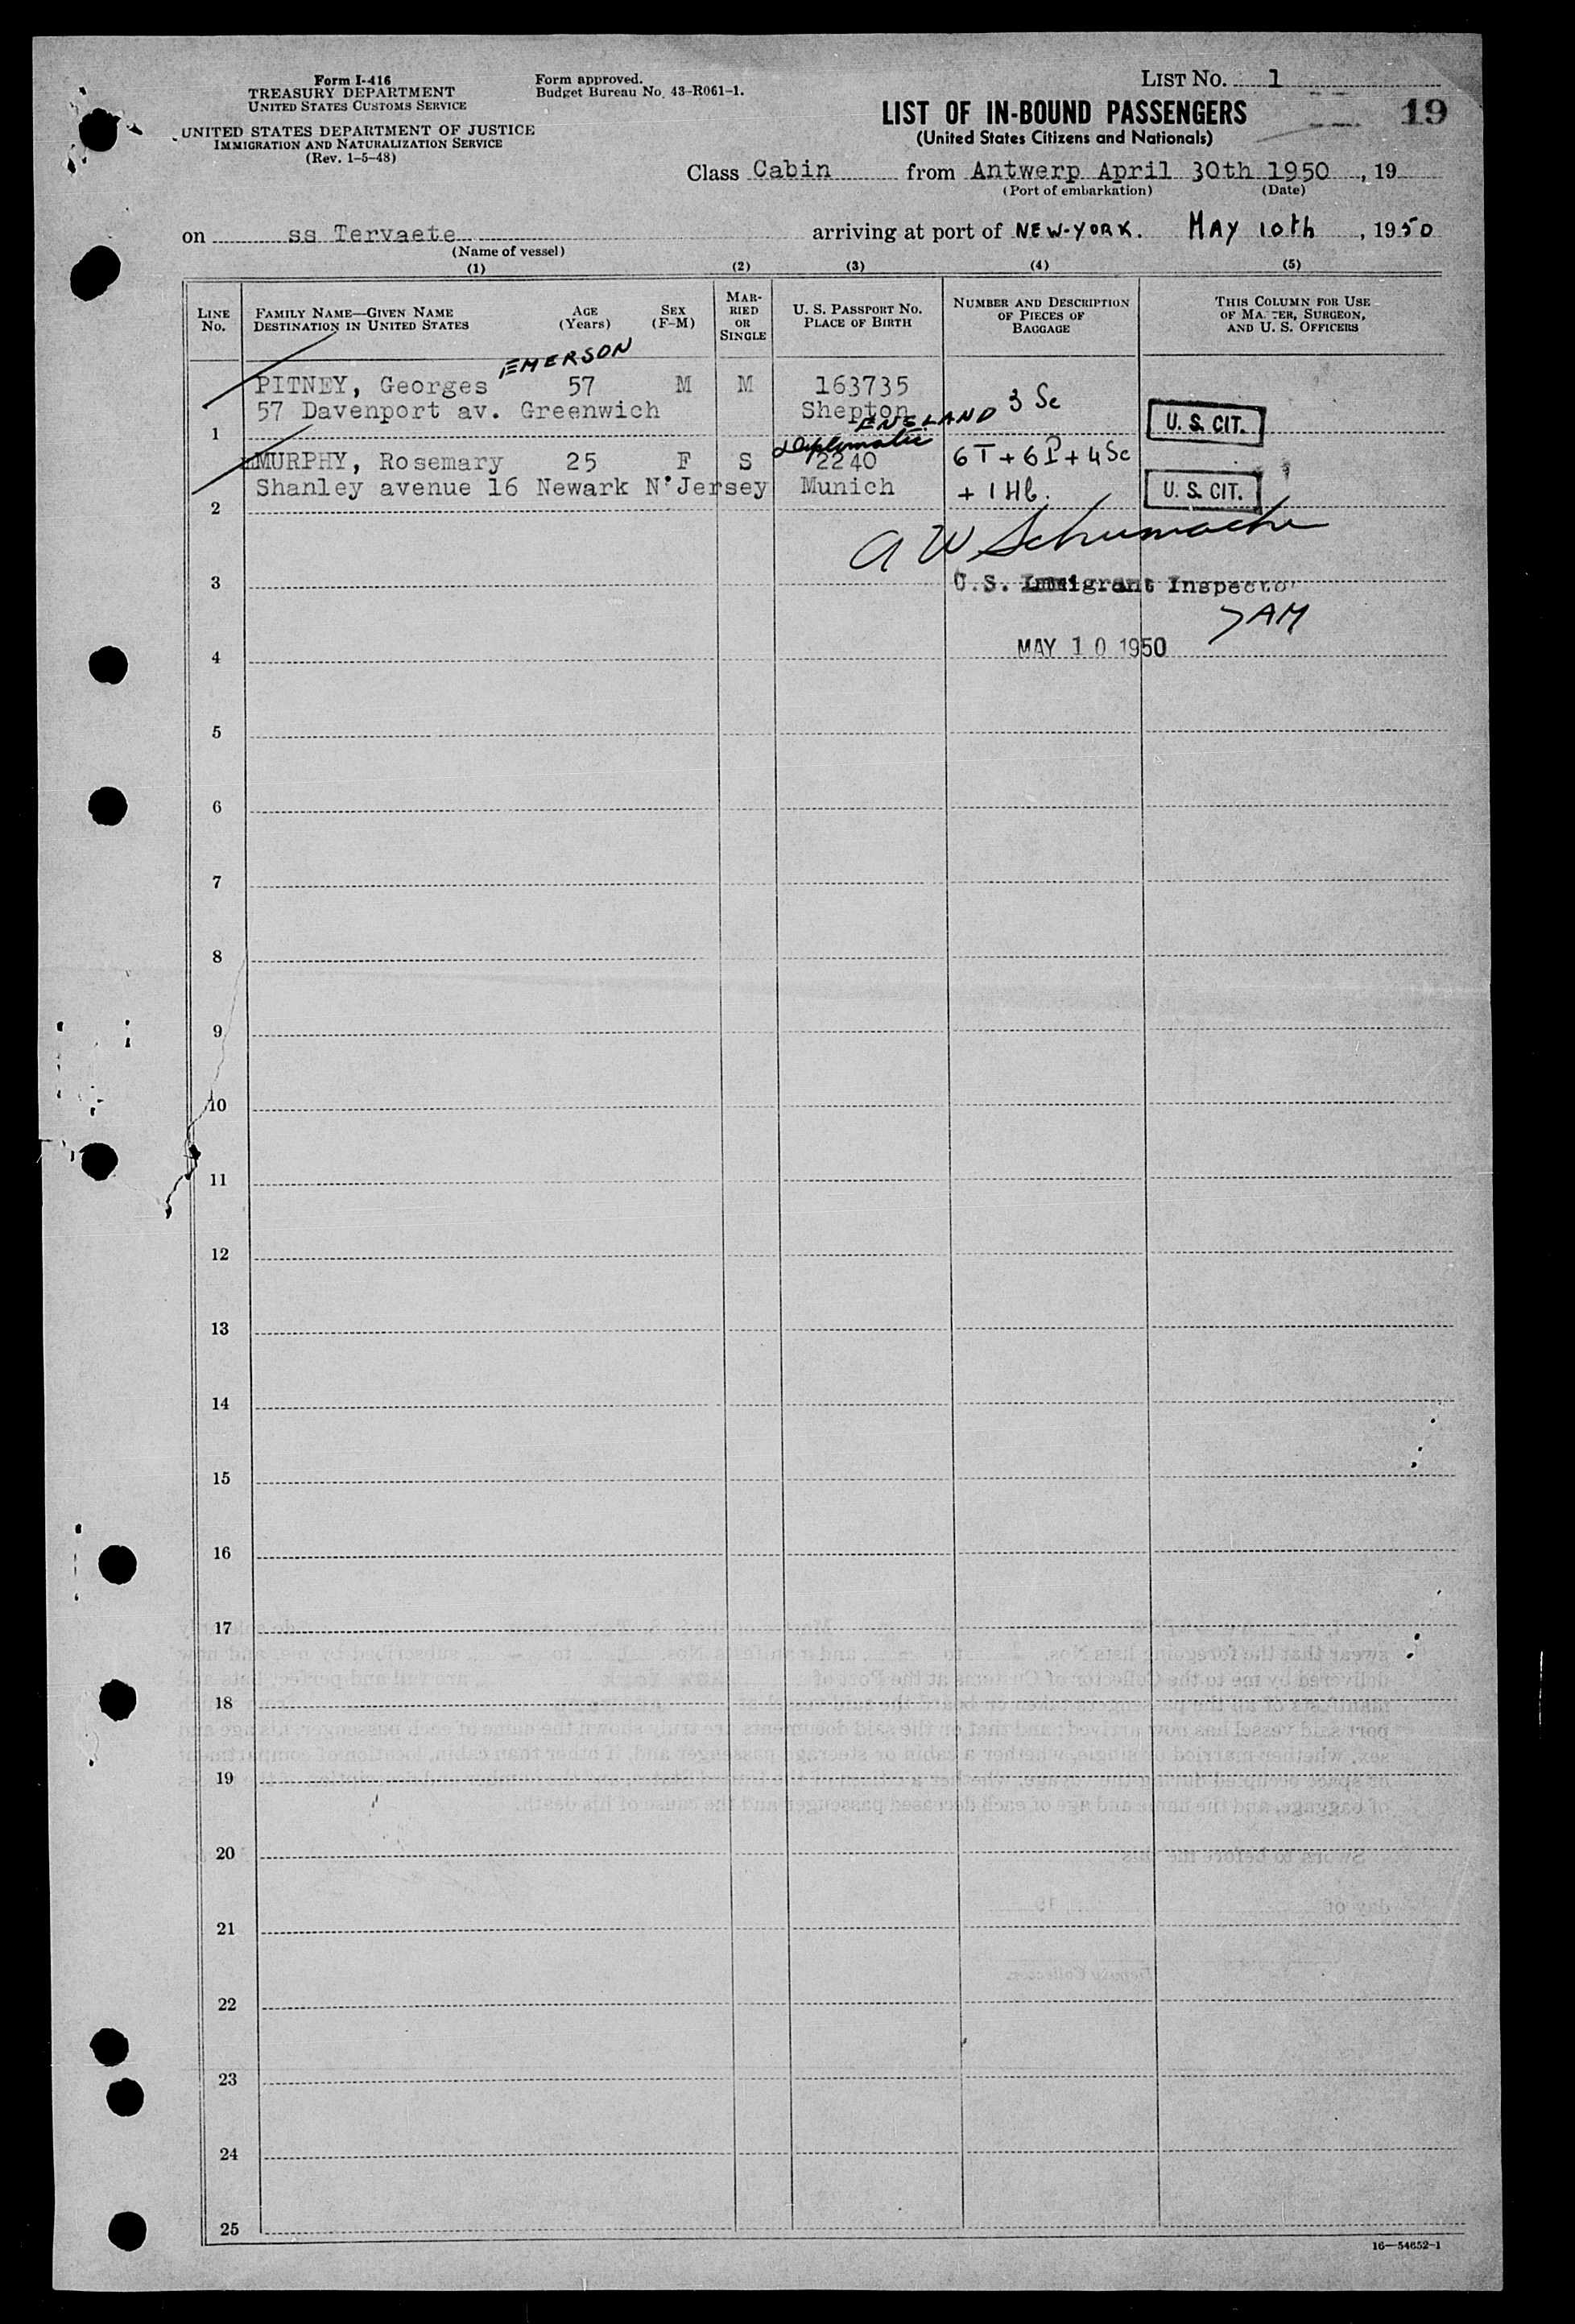 Form I-416
TREASURY DEPARTMENT
UNITED STATES CUSTOMS SERVICE
UNITED STATES DEPARTMENT OF JUSTICE
IMMIGRATION AND NATURALIZATION SERVICE
(Rev. 1-5-48)
Form approved.
Budget Bureau No. 43-R061-1.
LIST NO. 1
LIST OF IN-BOUND PASSENGERS 19
(United States Citizens and Nationals)
Class Cabin from Antwerp April 30th 1950, 19
(Port of embarkation) (Date)
on ss Tervaete arriving at port of NEW-YORK. MAY 10th, 1950
(Name of vessel)
(1) (2) (3) (4) (5)
LINE No. FAMILY NAME—GIVEN NAME DESTINATION IN UNITED STATES AGE (Years) SEX (F-M) MARRIED OR SINGLE U. S. PASSPORT NO. PLACE OF BIRTH NUMBER AND DESCRIPTION OF PIECES OF BAGGAGE THIS COLUMN FOR USE OF MASTER, SURGEON, AND U. S. OFFICERS
EMERSON
PITNEY, Georges 57 M M 163735
57 Davenport av. Greenwich Shepton 3 Sc
1 ENGLAND U. S. CIT.
Diplomatic
MURPHY, Rosemary 25 F S 2240 6T + 6P + 4Sc
Shanley avenue 16 Newark N'Jersey Munich + 1 Hb. U. S. CIT.
2
A W Schumacher
3 U.S. Immigrant Inspector
JAM
4 MAY 10 1950
5
6
7
8
9
10
11
12
13
14
15
16
17
18
19
20
21
22
23
24
25
16—54652-1